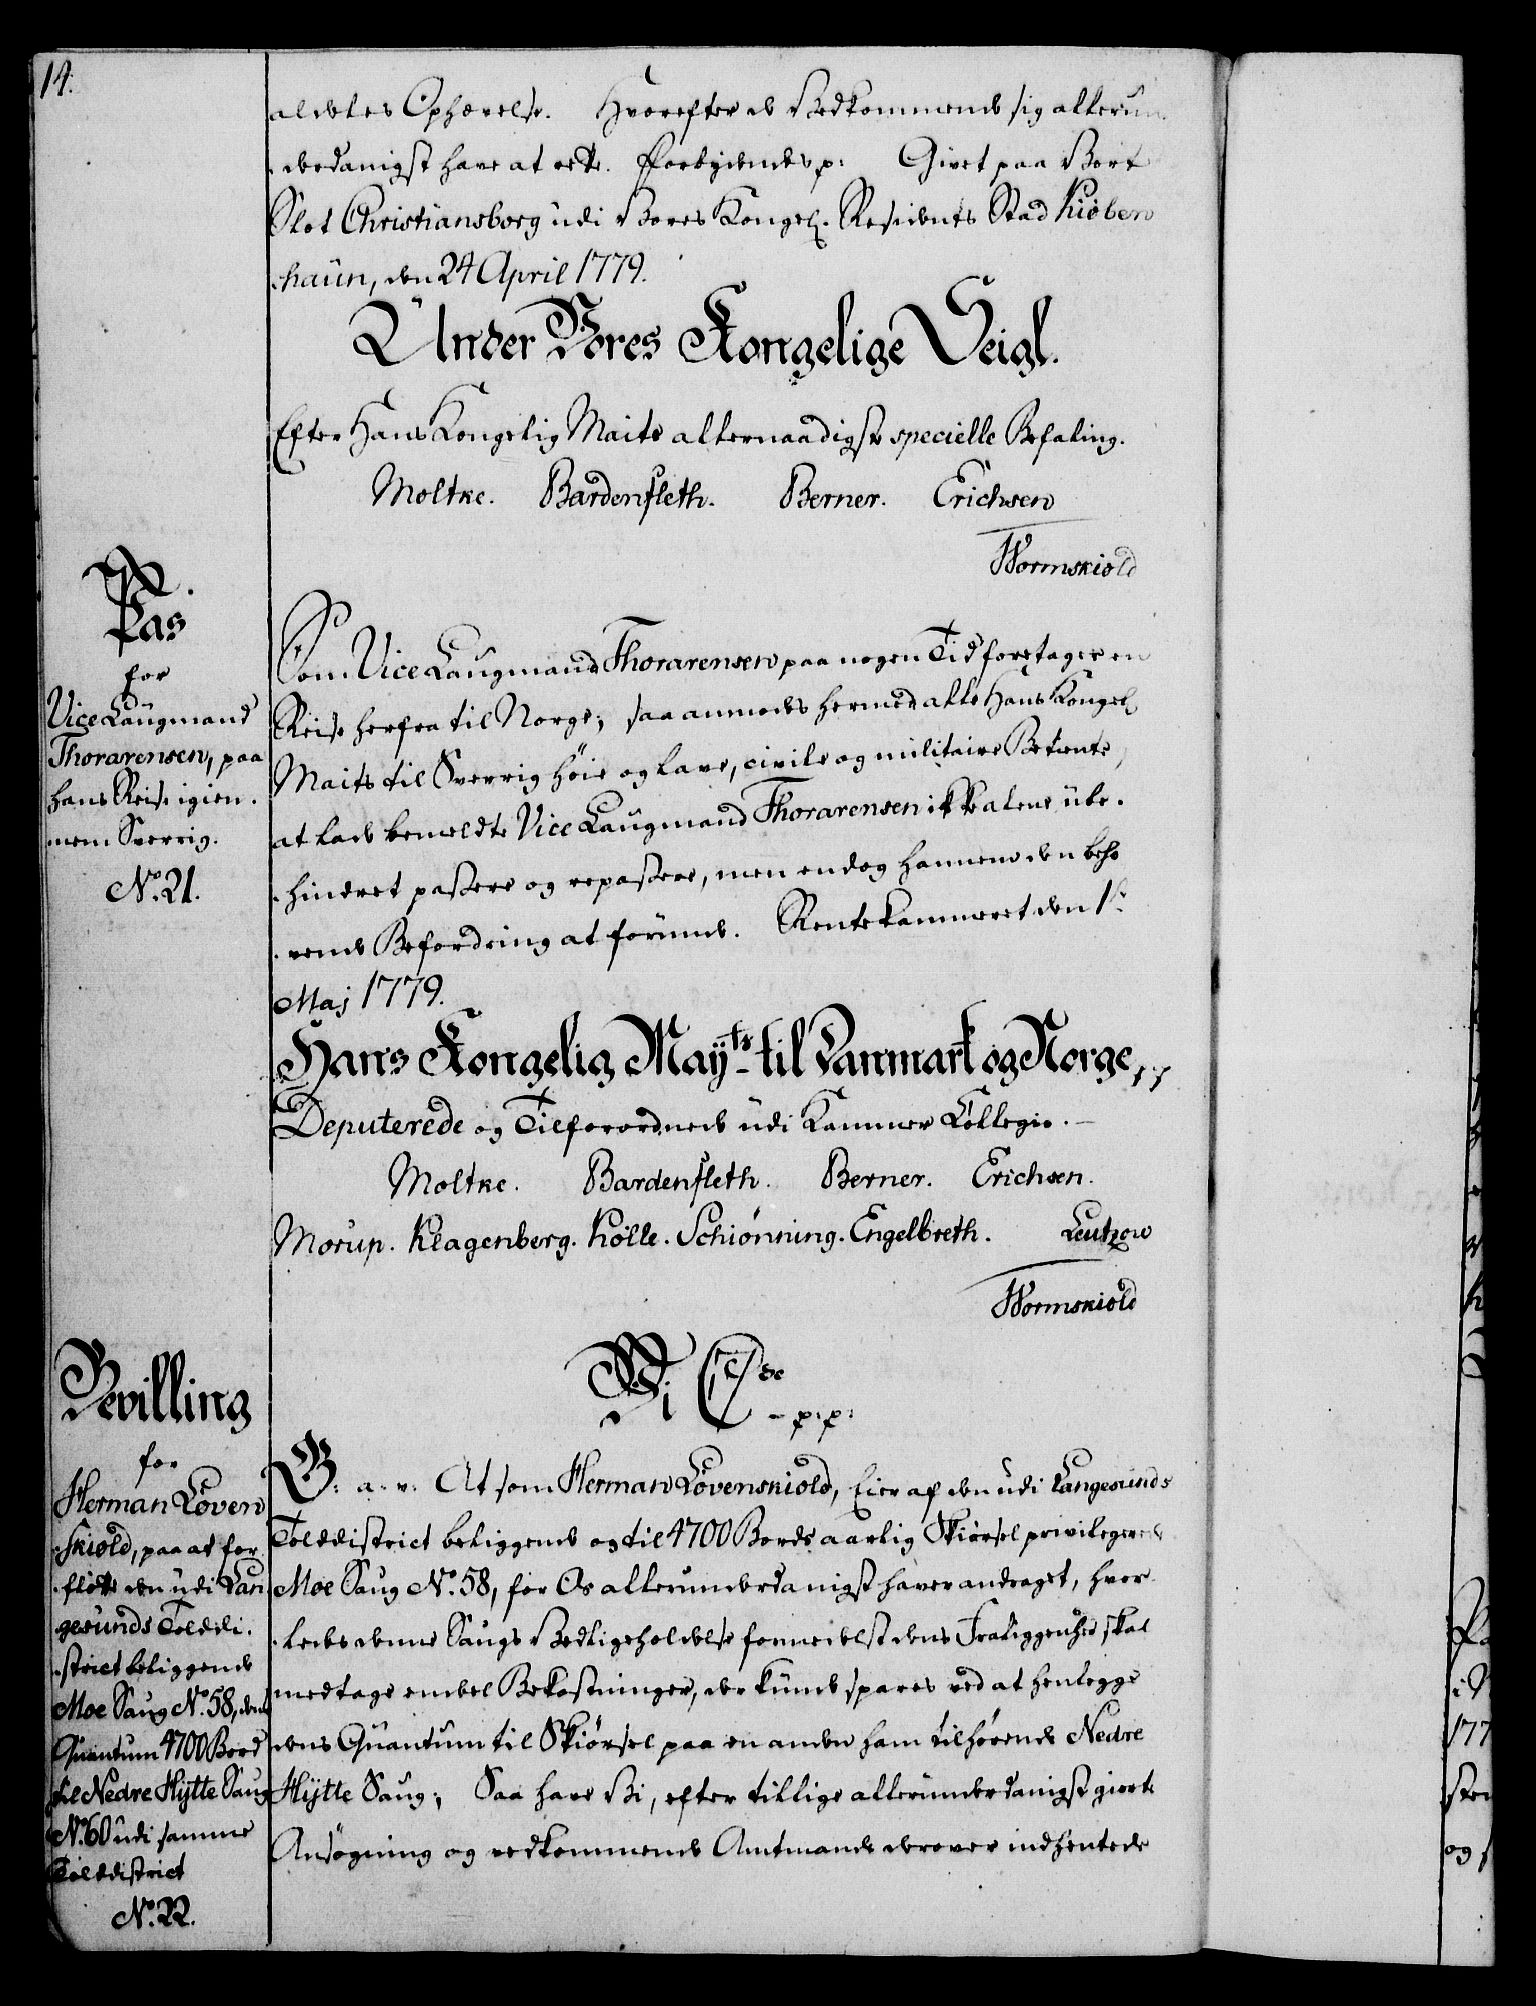 14.
aldeles Ophævelse. Hvorefter de Vedkommende sig allerun¬
derdanigst have at rette. Forbydendes p: Givet paa Vort
Slot Christiansborg udi Vores Kongel. Residents Stad Kiøben
havn, den 24 April 1779.
Under Vores Kongelige Seigl.
Efter Hans Kongelig Maits allernaadigste specielle Befaling.
Moltke. Bardenfleth. Berner. Erichsen
Wormskiold
Pas
for
Vice Laugmand
Thorarensen, paa
hans Reise igien¬
nem Sverrig.
No. 21.
Som Vice Laugmand Thorarensen paa nogen Tid foretager en
Reise herfra til Norge; saa anmodes hermed alle Hans Kongel.
Maits til Sverrig høie og lave, civile og militaire Betiente,
at lade bemeldte Vice Laugmand Thorarensen ikke alene ube¬
hindret passere og repassere, men endog hannem den beho
vende Befordring at forunde. Rentekammeret den 1st
Maj 1779.
Hans Kongelig Mayts til Danmark og Norge, p p
Deputerede og Tilforordnede udi Kammer Collegio.
Moltke. Bardenfleth. Berner. Erichsen.
Morup. Klagenberg. Kölle. Schiønning. Engelbreth. Leutzow
Wormskiold
Bevilling
for
Herman Løven
skiold, paa at for¬
flötte den udi Lan
gesunds Tolddi¬
strict beliggende
Moe Saug No. 58, dens
Quantum 4700 Bord
til Nedre Hytte Saug
No. 60 udi samme
Tolddistrict
No. 22.
Vi C 7de p: p:
G: a. v: At som Herman Løvenskiold, Eier af den udi Langesunds
Tolddistrict beliggende og til 4700 Bords aarlig Skiørsel privilegerede
Moe Saug No. 58, for Os allerunderdanigst haver andraget, hvor¬
ledes denne Saugs Vedligeholdelse formedelst dens Fraliggenhed skal
medtage endeel Bekostninger, der kunde spares ved at henlegge
dens Quantum til Skiørsel paa en anden ham tilhørende Nedre
Hytte Saug; Saa have Vi, efter tillige allerunderdanigst giorte
Ansøgning og vedkommende Amtmands derover indhentede